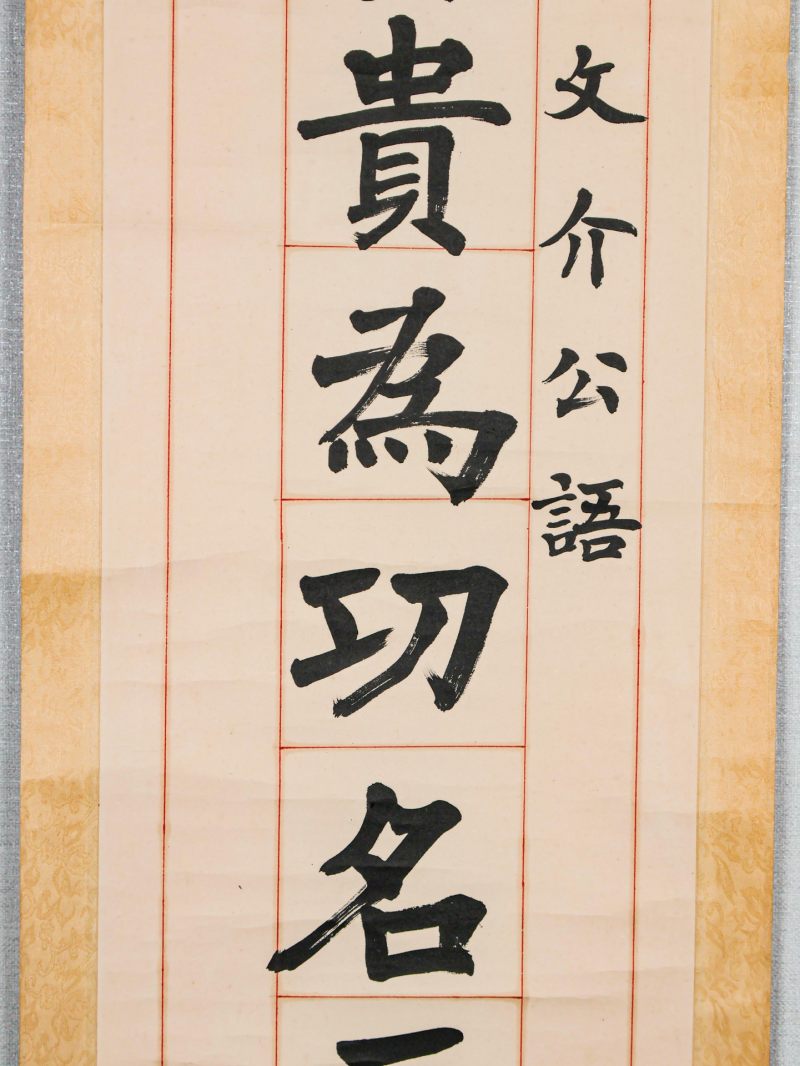 文介公語
貴為功名